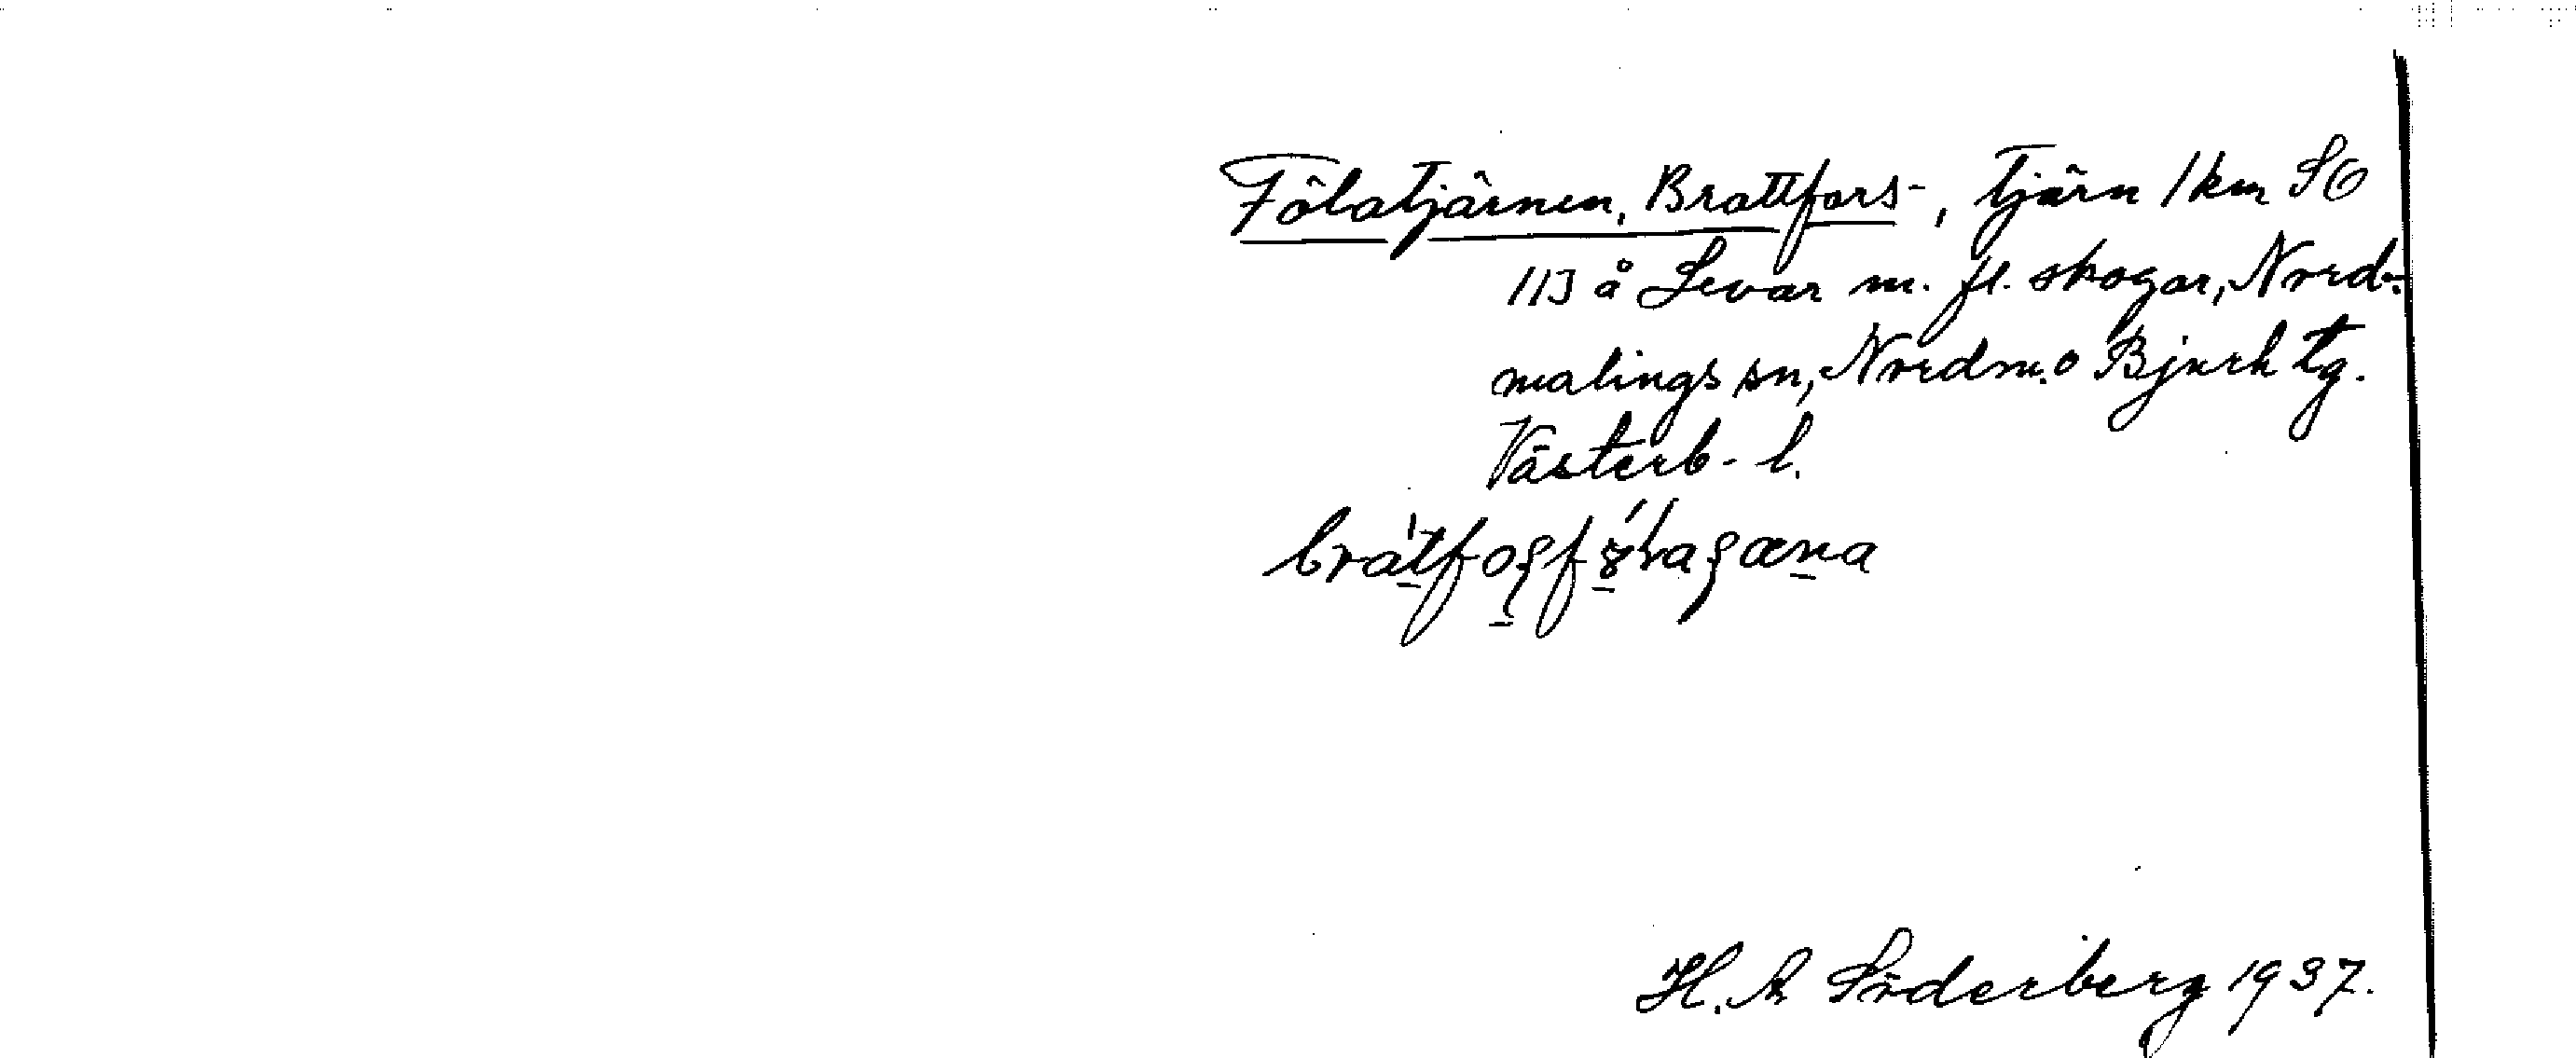 Fölatjärnen, Brattfors-, tjärn 1 km SO
113 å Levar m. fl. skogar, Nord-
malings sn, Nordm. o Bjurh tg.
Västerb- l.
H. A Söderberg 1937.